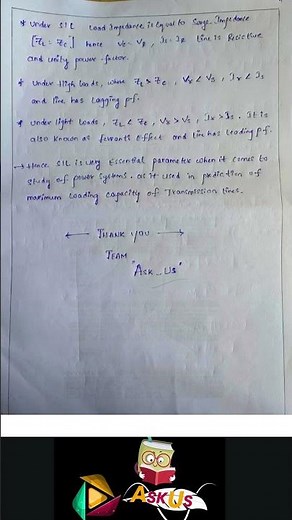 * Under SIL Load Impedance is Equal to Surge Impedance
[ZL = ZC] hence VS = VR, IS = IR Line is Resistive
and unity power-factor.
* Under High loads, where ZL > ZC, VR < VS, IR < IS
and line has Lagging p.f.
* Under light loads, ZL < ZC, VR > VS, IR > IS. It is
also known as ferranti Effect and line has leading p.f.
→ Hence SIL is very Essential parameter when it comes to
study of power systems. as it used in prediction of
maximum loading capacity of Transmission lines.
← THANK YOU →
TEAM
"ASK_US"
ASKUS